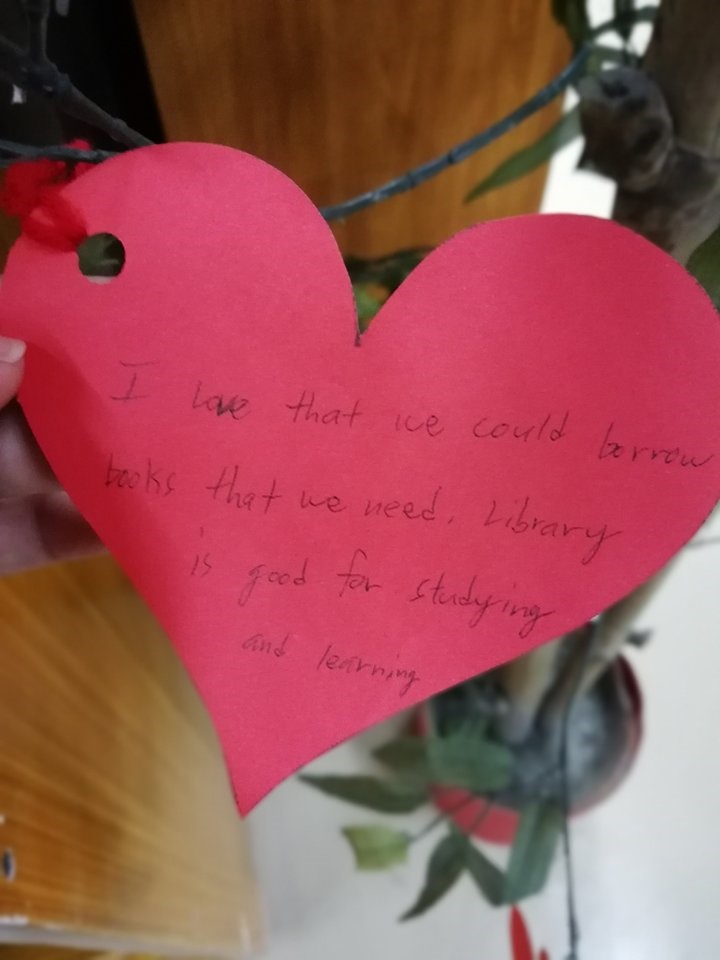 I love that we could borrow
books that we need. Library
is good for studying
and learning